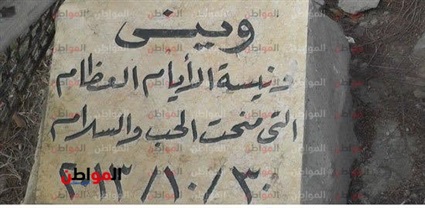 وينى
ونيسة الأيام العظام
التى منحت الحب والسلام
٢٠١٣/١٠/٣٠
المواطن